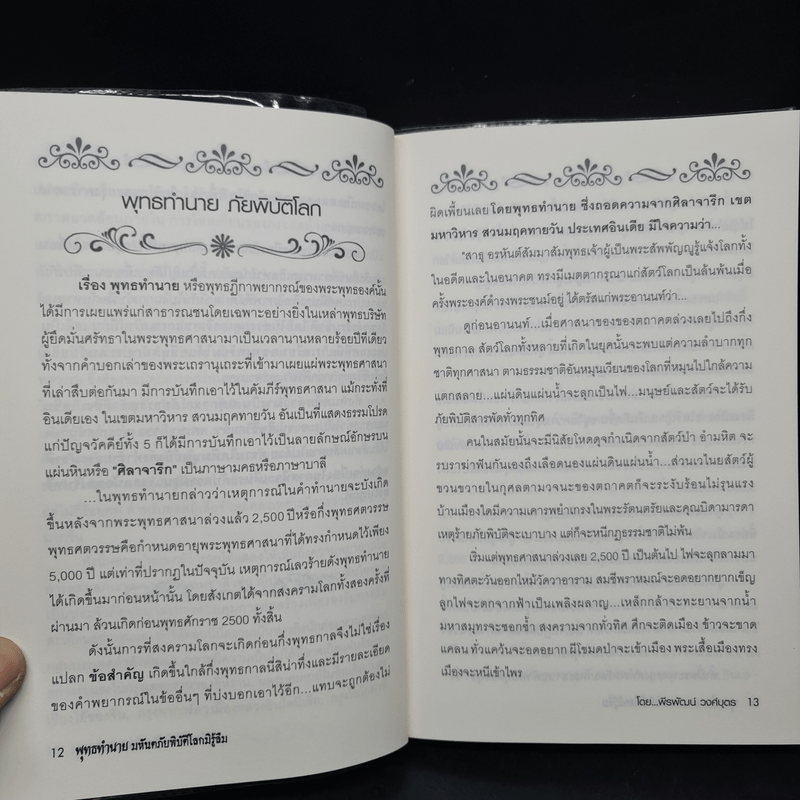 พุทธทำนาย ภัยพิบัติโลก
เรื่อง พุทธทำนาย หรือพุทธฎีกาพยากรณ์ของพระพุทธองค์นั้น
ได้มีการเผยแพร่แก่สาธารณชนโดยเฉพาะอย่างยิ่งในเหล่าพุทธบริษัท
ผู้ยึดมั่นศรัทธาในพระพุทธศาสนามาเป็นเวลานานหลายร้อยปีทีเดียว
ทั้งจากคำบอกเล่าของพระเถรานุเถระที่เข้ามาเผยแผ่พระพุทธศาสนา
ที่เล่าสืบต่อกันมา มีการบันทึกเอาไว้ในคัมภีร์พุทธศาสนา แม้กระทั่งที่
อินเดียเอง ในเขตมหาวิหาร สวนมฤคทายวัน อันเป็นที่แสดงธรรมโปรด
แก่ปัญจวัคคีย์ทั้ง 5 ก็ได้มีการบันทึกเอาไว้เป็นลายลักษณ์อักษรบน
แผ่นหินหรือ "ศิลาจารึก" เป็นภาษามคธหรือภาษาบาลี
...ในพุทธทำนายกล่าวว่าเหตุการณ์ในคำทำนายจะบังเกิด
ขึ้นหลังจากพระพุทธศาสนาล่วงแล้ว 2,500 ปีหรือกึ่งพุทธศตวรรษ
พุทธศตวรรษคือกำหนดอายุพระพุทธศาสนาที่ได้ทรงกำหนดไว้เพียง
5,000 ปี แต่เท่าที่ปรากฏในปัจจุบัน เหตุการณ์เลวร้ายดังพุทธทำนาย
ได้เกิดขึ้นมาก่อนหน้านั้น โดยสังเกตได้จากสงครามโลกทั้งสองครั้งที่
ผ่านมา ล้วนเกิดก่อนพุทธศักราช 2500 ทั้งสิ้น
ดังนั้นการที่สงครามโลกจะเกิดก่อนกึ่งพุทธกาลจึงไม่ใช่เรื่อง
แปลก ข้อสำคัญ เกิดขึ้นใกล้กึ่งพุทธกาลนี่สิน่าทึ่งและมีรายละเอียด
ของคำพยากรณ์ในข้ออื่นๆ ที่บ่งบอกเอาไว้อีก...แทบจะถูกต้องไม่
12 พุทธทำนาย มหันตภัยพิบัติโลกมิรู้ลืม
ผิดเพี้ยนเลย โดยพุทธทำนาย ซึ่งถอดความจากศิลาจารึก เขต
มหาวิหาร สวนมฤคทายวัน ประเทศอินเดีย มีใจความว่า...
"สาธุ อรหันต์สัมมาสัมพุทธเจ้าผู้เป็นพระสัพพัญญูรู้แจ้งโลกทั้ง
ในอดีตและในอนาคต ทรงมีเมตตากรุณาแก่สัตว์โลกเป็นล้นพ้นเมื่อ
ครั้งพระองค์ดำรงพระชนม์อยู่ ได้ตรัสแก่พระอานนท์ว่า...
ดูก่อนอานนท์...เมื่อศาสนาของของตถาคตล่วงเลยไปถึงกึ่ง
พุทธกาล สัตว์โลกทั้งหลายที่เกิดในยุคนั้นจะพบแต่ความลำบากทุก
ชาติทุกศาสนา ตามธรรมชาติอันหมุนเวียนของโลกที่หมุนไปใกล้ความ
แตกสลาย...แผ่นดินแผ่นน้ำจะลุกเป็นไฟ...มนุษย์และสัตว์จะได้รับ
ภัยพิบัติสารพัดทั่วทุกทิศ
คนในสมัยนั้นจะมีนิสัยโหดดุจกำเนิดจากสัตว์ป่า อำมหิต จะ
รบราฆ่าฟันกันเองถึงเลือดนองแผ่นดินแผ่นน้ำ...ส่วนเวไนยสัตว์ผู้
ชวนขวายในกุศลตามวจนะของตถาคตก็จะระงับร้อนไม่รุนแรง
บ้านเมืองใดมีความเคารพยำเกรงในพระรัตนตรัยและคุณบิดามารดา
เหตุร้ายภัยพิบัติจะเบาบาง แต่ก็จะหนีกฎธรรมชาติไม่พ้น
เริ่มแต่พุทธศาสนาล่วงเลย 2,500 ปี เป็นต้นไป ไฟจะลุกลามมา
ทางทิศตะวันออกไหม้วัดวาอาราม สมชีพราหมณ์จะอดอยากยากเข็ญ
ลูกไฟจะตกจากฟ้าเป็นเพลิงผลาญ...เหล็กกล้าจะทะยานจากน้ำ
มหาสมุทรจะซอกซ้ำ สงครามจากทั่วทิศ ศึกจะติดเมือง ข้าวจะขาด
แคลน ทั่วแคว้นจะอดอยาก ผีโขมดป่าจะเข้าเมือง พระเสื้อเมืองทรง
เมืองจะหนีเข้าไพร
โดย...พีรพัฒน์ วงศ์บุตร 13